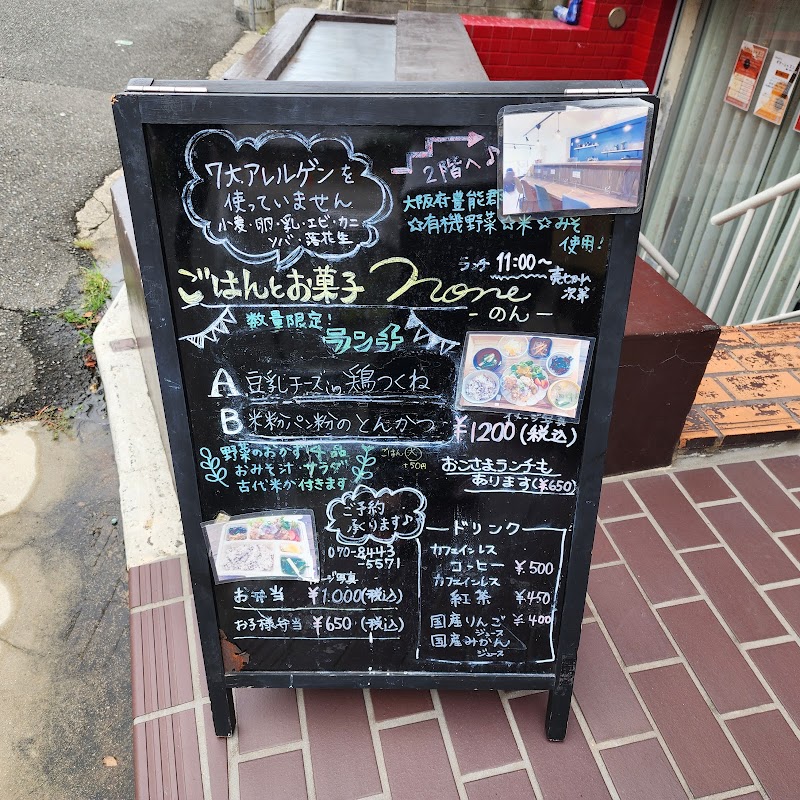 7大アレルゲンを
使っていません
小麦・卵・乳・エビ・カニ
ソバ・落花生
2階へ♪
大阪府豊能郡
☆有機野菜☆米☆みそ
使用!
ランチ 11:00〜
売セカレ
次第
ごはんとお菓子 none
-のん-
数量限定!
ランチ
A 豆乳チーズin鶏つくね
B 米粉パン粉のとんかつ
イメージ写真
¥1200(税込)
野菜のおかず4品
おみそ汁 サラダ
古代米が付きます
ごはん大
+50円
お子さまランチも
あります(¥650)
ご予約
承ります♪
070-8443
-5571
ジ写真
お弁当 ¥1.000(税込)
お子様弁当 ¥650(税込)
ドリンク
カフェインレス
コーヒー ¥500
カフェインレス
紅茶 ¥450
国産りんご ¥400
ジュース
国産みかん
ジュース